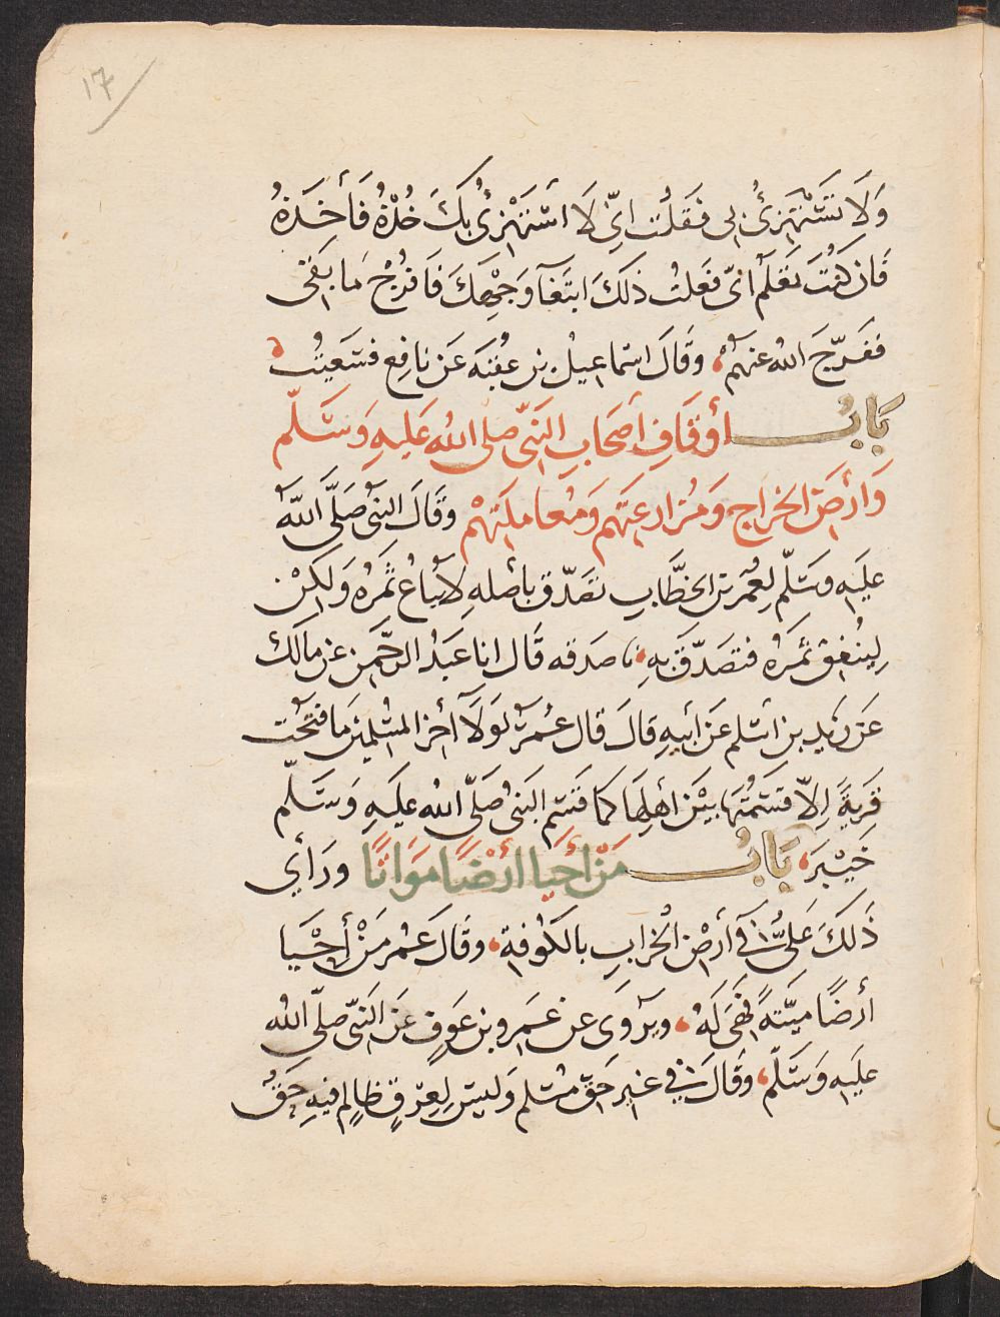 ١٧
وَلَا تَسْتَهْزِئُ بِي فَقُلْتُ اِنِّي لَا اَسْتَهْزِئُ بِكَ خُذْهُ فَأَخَذَهُ
فَان كُنْتَ تَعْلَمُ انّي فَعَلتُ ذلكَ ابتَغآ وَجهِكَ فَافْرُجْ مَا بَقى
فَفَرّجَ الله عنهم، وقَالَ اسماعِيلُ بن عُقبَه عَن نافِع فسَعَيتُ
بَابُ أوقَافِ أصحَابِ النَّبيّ صلى الله عَليهِ وَسَلّم
وَارْضِ الخَراجِ وَمُزَارعَتهم وَمُعَاملتهْم وقَالَ النبيُّ صَلَّى اللهُ
عليَهِ وسَلّم لِعُمَر بن الخطَّابِ تصَدّق بأصْلهِ لا يُبَاعُ ثَمَرُه وَلكِنْ
لِيُنْفق ثَمرُه فتصَدَّقَ بِهِ، نا صدقه قَال انا عَبدُ الرحَّمن عن مالك
عَن زَيد بن اسْلم عَن ابيهِ قالَ قال عُمرُ لَوَلَا آخر المُسْلِمينَ مَا فتحْت
قَريةً إلاّ قَسَمْتُهَا بيْنَ أهلِها كما قسَم النبيُّ صَلّى الله عليَهِ وَسَلّم
خَيْبَرَ، بَابُ مَنْ أحيا ارْضًا مَوَاتًا ورَأي
ذَلكَ عَليٌّ في أرْضِ الخرابِ بالكوُفةِ، وقَالَ عُمَر مَنْ أحْيَا
أرضًا ميّتَةً فَهيَ لَهُ، ويُروَى عن عَمرو بن عَوفٍ عَن النَبيّ صلّى الله
عليَهِ وَسَلّم، وقَالَ في غيرِ حَقّ مُسْلم وَليسَ لِعِرْقٍ ظالِمٍ فيهِ حَقٌّ